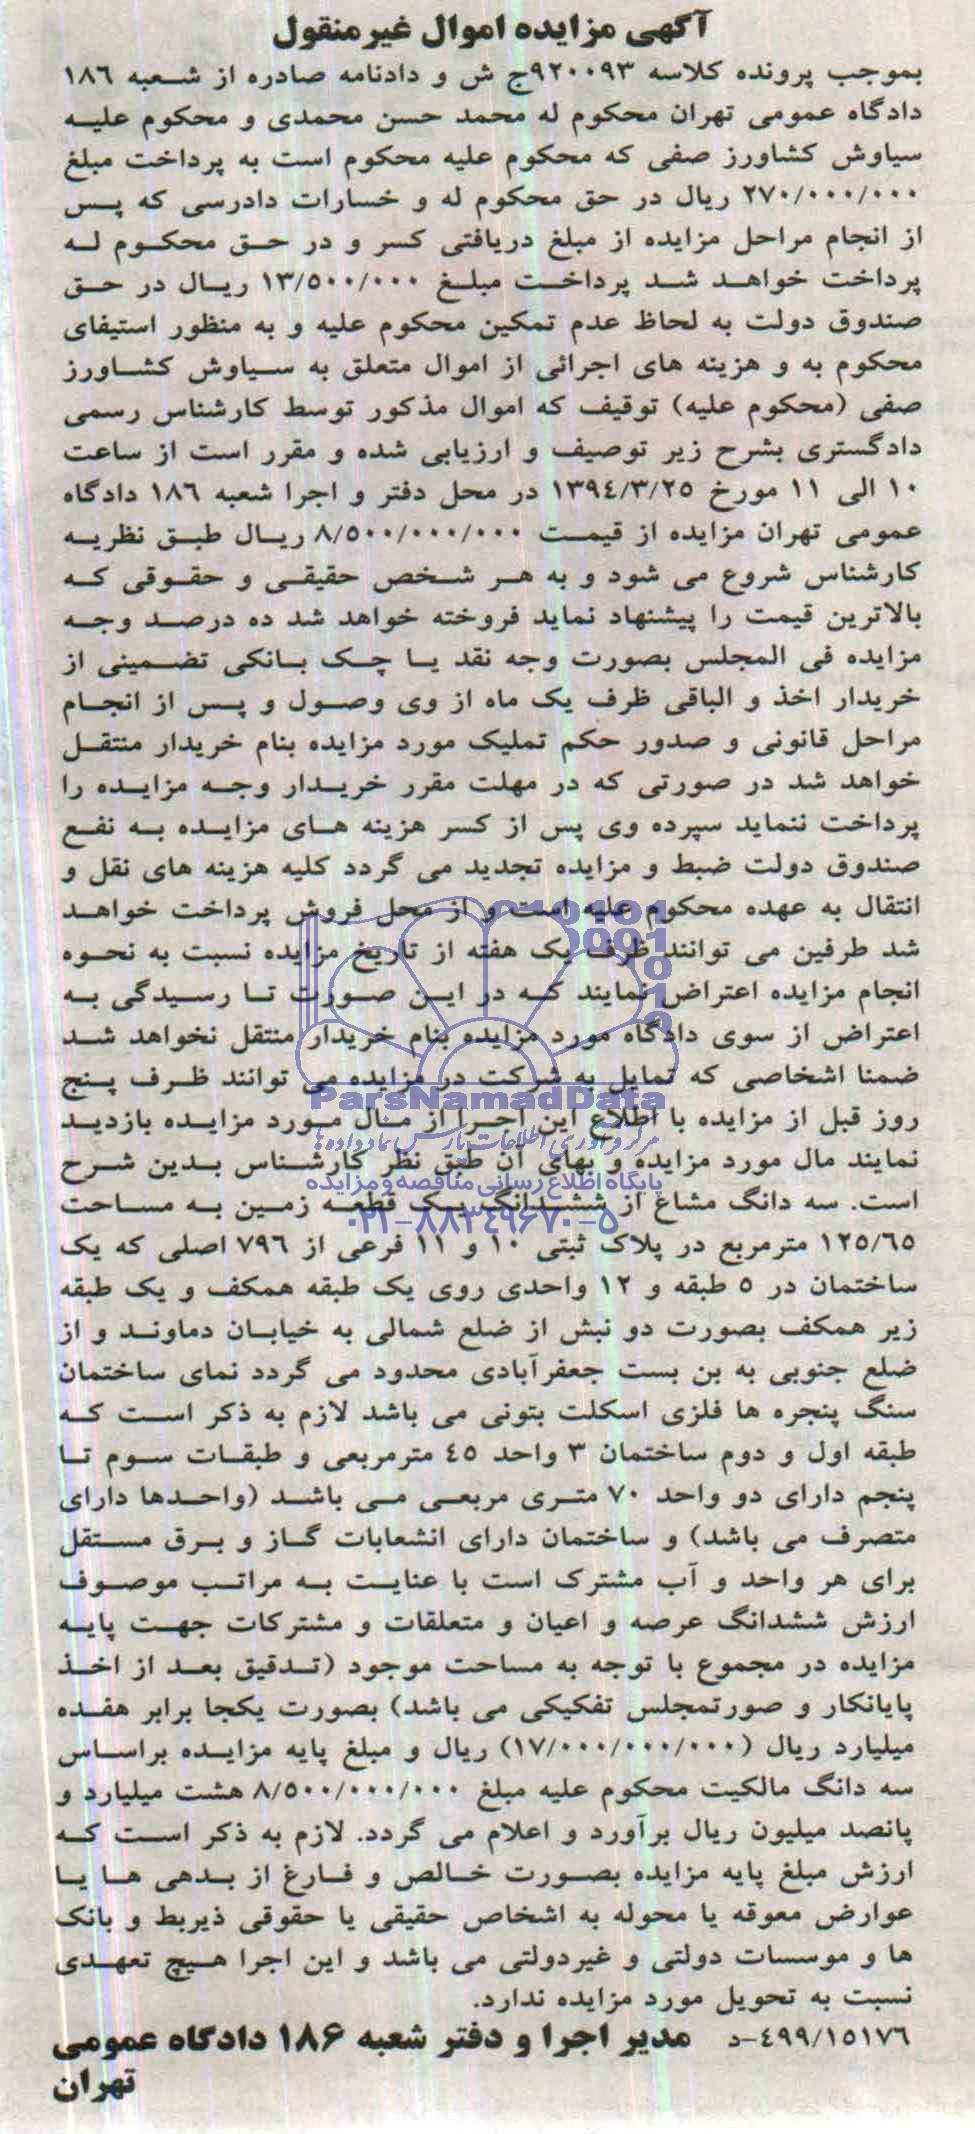 آگهی مزایده اموال غیرمنقول
بموجب پرونده کلاسه ۹۲۰۰۹۳ج ش و دادنامه صادره از شعبه ۱۸۶
دادگاه عمومی تهران محکوم له محمد حسن محمدی و محکوم علیه
سیاوش کشاورز صفی که محکوم علیه محکوم است به پرداخت مبلغ
۲۷۰/۰۰۰/۰۰۰ ریال در حق محکوم له و خسارات دادرسی که پس
از انجام مراحل مزایده از مبلغ دریافتی کسر و در حق محکوم له
پرداخت خواهد شد پرداخت مبلغ ۱۳/۵۰۰/۰۰۰ ریال در حق
صندوق دولت به لحاظ عدم تمکین محکوم علیه و به منظور استیفای
محکوم به و هزینه های اجرائی از اموال متعلق به سیاوش کشاورز
صفی (محکوم علیه) توقیف که اموال مذکور توسط کارشناس رسمی
دادگستری بشرح زیر توصیف و ارزیابی شده و مقرر است از ساعت
۱۰ الی ۱۱ مورخ ۱۳۹٤/۳/۲۵ در محل دفتر و اجرا شعبه ۱۸۶ دادگاه
عمومی تهران مزایده از قیمت ۸/۵۰۰/۰۰۰/۰۰۰ ریال طبق نظریه
کارشناس شروع می شود و به هر شخص حقیقی و حقوقی که
بالاترین قیمت را پیشنهاد نماید فروخته خواهد شد ده درصد وجه
مزایده فی المجلس بصورت وجه نقد یا چک بانکی تضمینی از
خریدار اخذ و الباقی ظرف یک ماه از وی وصول و پس از انجام
مراحل قانونی و صدور حکم تملیک مورد مزایده بنام خریدار منتقل
خواهد شد در صورتی که در مهلت مقرر خریدار وجه مزایده را
پرداخت ننماید سپرده وی پس از کسر هزینه های مزایده به نفع
صندوق دولت ضبط و مزایده تجدید می گردد کلیه هزینه های نقل و
انتقال به عهده محکوم علیه است و از محل فروش پرداخت خواهد
شد طرفین می توانند ظرف یک هفته از تاریخ مزایده نسبت به نحوه
انجام مزایده اعتراض نمایند که در این صورت تا رسیدگی به
اعتراض از سوی دادگاه مورد مزایده بنام خریدار منتقل نخواهد شد
ضمنا اشخاصی که تمایل به شرکت در مزایده می توانند ظرف پنج
ParsNamadData
روز قبل از مزایده با اطلاع این اجرا از مال مورد مزایده بازدید
مرکز فرآوری اطلاعات پارس نماد داده ها
نمایند مال مورد مزایده و بهای آن طبق نظر کارشناس بدین شرح
پایگاه اطلاع رسانی مناقصه و مزایده
است. سه دانگ مشاع از ششدانگ یک قطعه زمین به مساحت
۰۲۱-۸۸۳٤۹۶۷۰-۵
۱۲۵/۶۵ مترمربع در پلاک ثبتی ۱۰ و ۱۱ فرعی از ۷۹۶ اصلی که یک
ساختمان در ۵ طبقه و ۱۲ واحدی روی یک طبقه همکف و یک طبقه
زیر همکف بصورت دو نبش از ضلع شمالی به خیابان دماوند و از
ضلع جنوبی به بن بست جعفرآبادی محدود می گردد نمای ساختمان
سنگ پنجره ها فلزی اسکلت بتونی می باشد لازم به ذکر است که
طبقه اول و دوم ساختمان ۳ واحد ٤۵ مترمربعی و طبقات سوم تا
پنجم دارای دو واحد ۷۰ متری مربعی می باشد (واحدها دارای
متصرف می باشد) و ساختمان دارای انشعابات گاز و برق مستقل
برای هر واحد و آب مشترک است با عنایت به مراتب موصوف
ارزش ششدانگ عرصه و اعیان و متعلقات و مشترکات جهت پایه
مزایده در مجموع با توجه به مساحت موجود (تدقیق بعد از اخذ
پایانکار و صورتمجلس تفکیکی می باشد) بصورت یکجا برابر هفده
میلیارد ریال (۱۷/۰۰۰/۰۰۰/۰۰۰) ریال و مبلغ پایه مزایده براساس
سه دانگ مالکیت محکوم علیه مبلغ ۸/۵۰۰/۰۰۰/۰۰۰ هشت میلیارد و
پانصد میلیون ریال برآورد و اعلام می گردد. لازم به ذکر است که
ارزش مبلغ پایه مزایده بصورت خالص و فارغ از بدهی ها یا
عوارض معوقه یا محوله به اشخاص حقیقی یا حقوقی ذیربط و بانک
ها و موسسات دولتی و غیردولتی می باشد و این اجرا هیچ تعهدی
نسبت به تحویل مورد مزایده ندارد.
٤۹۹/۱۵۱۷۶-د مدیر اجرا و دفتر شعبه ۱۸۶ دادگاه عمومی
تهران